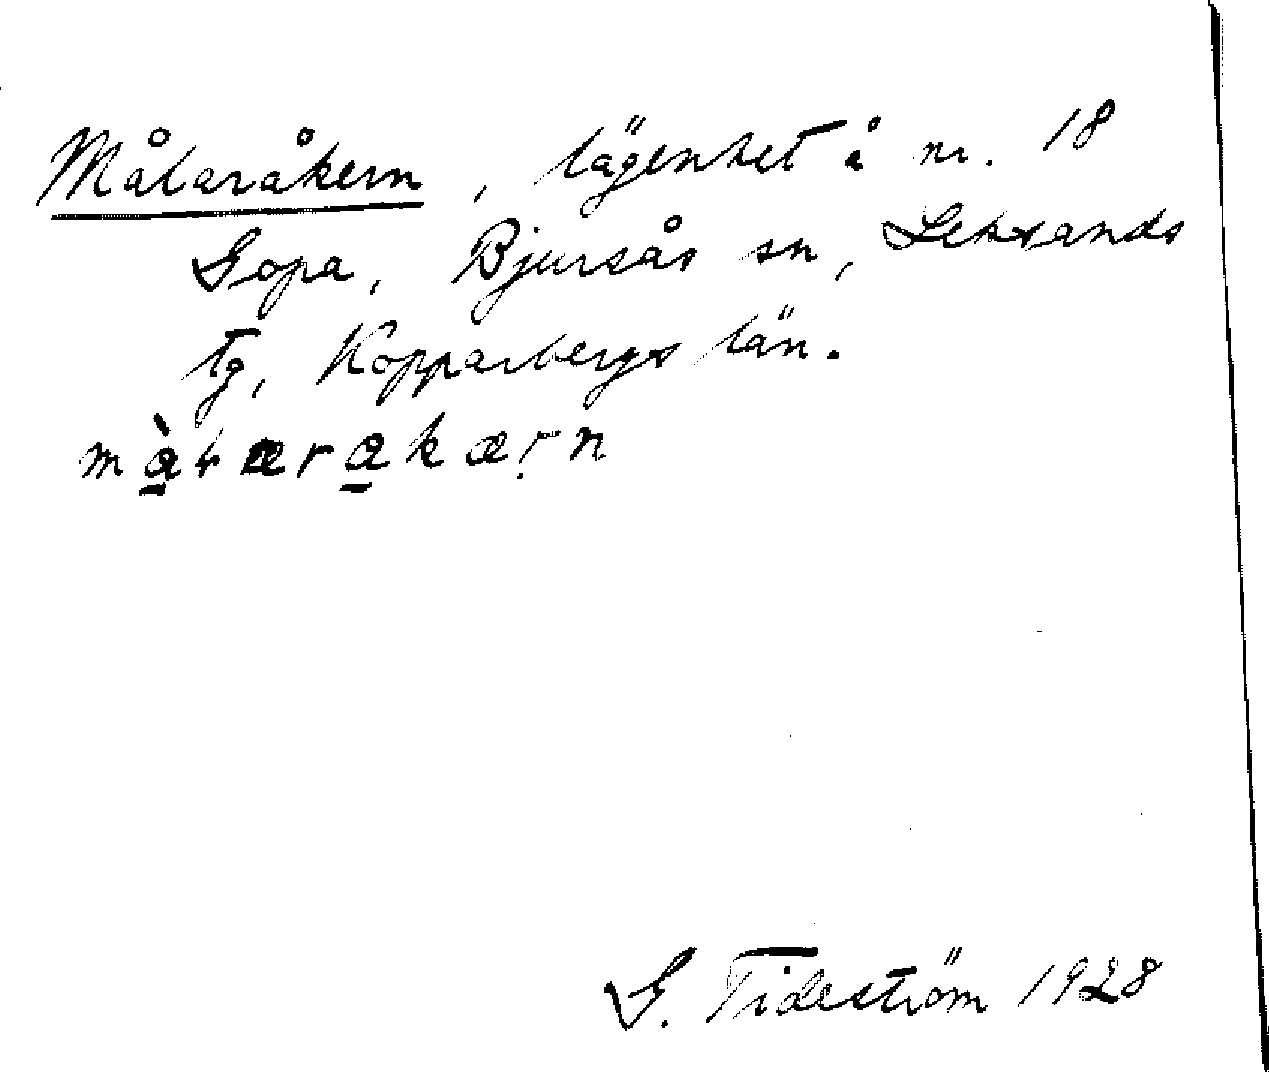 Målaråkern, lägenhet å nr. 18
Gopa, Bjursås sn, Leksands
tg, Kopparbergs län.
G. Tideström 1928